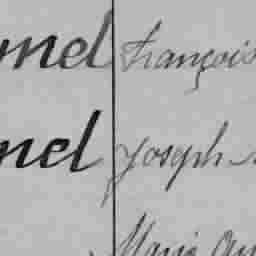 mel François
nel Joseph
Marie